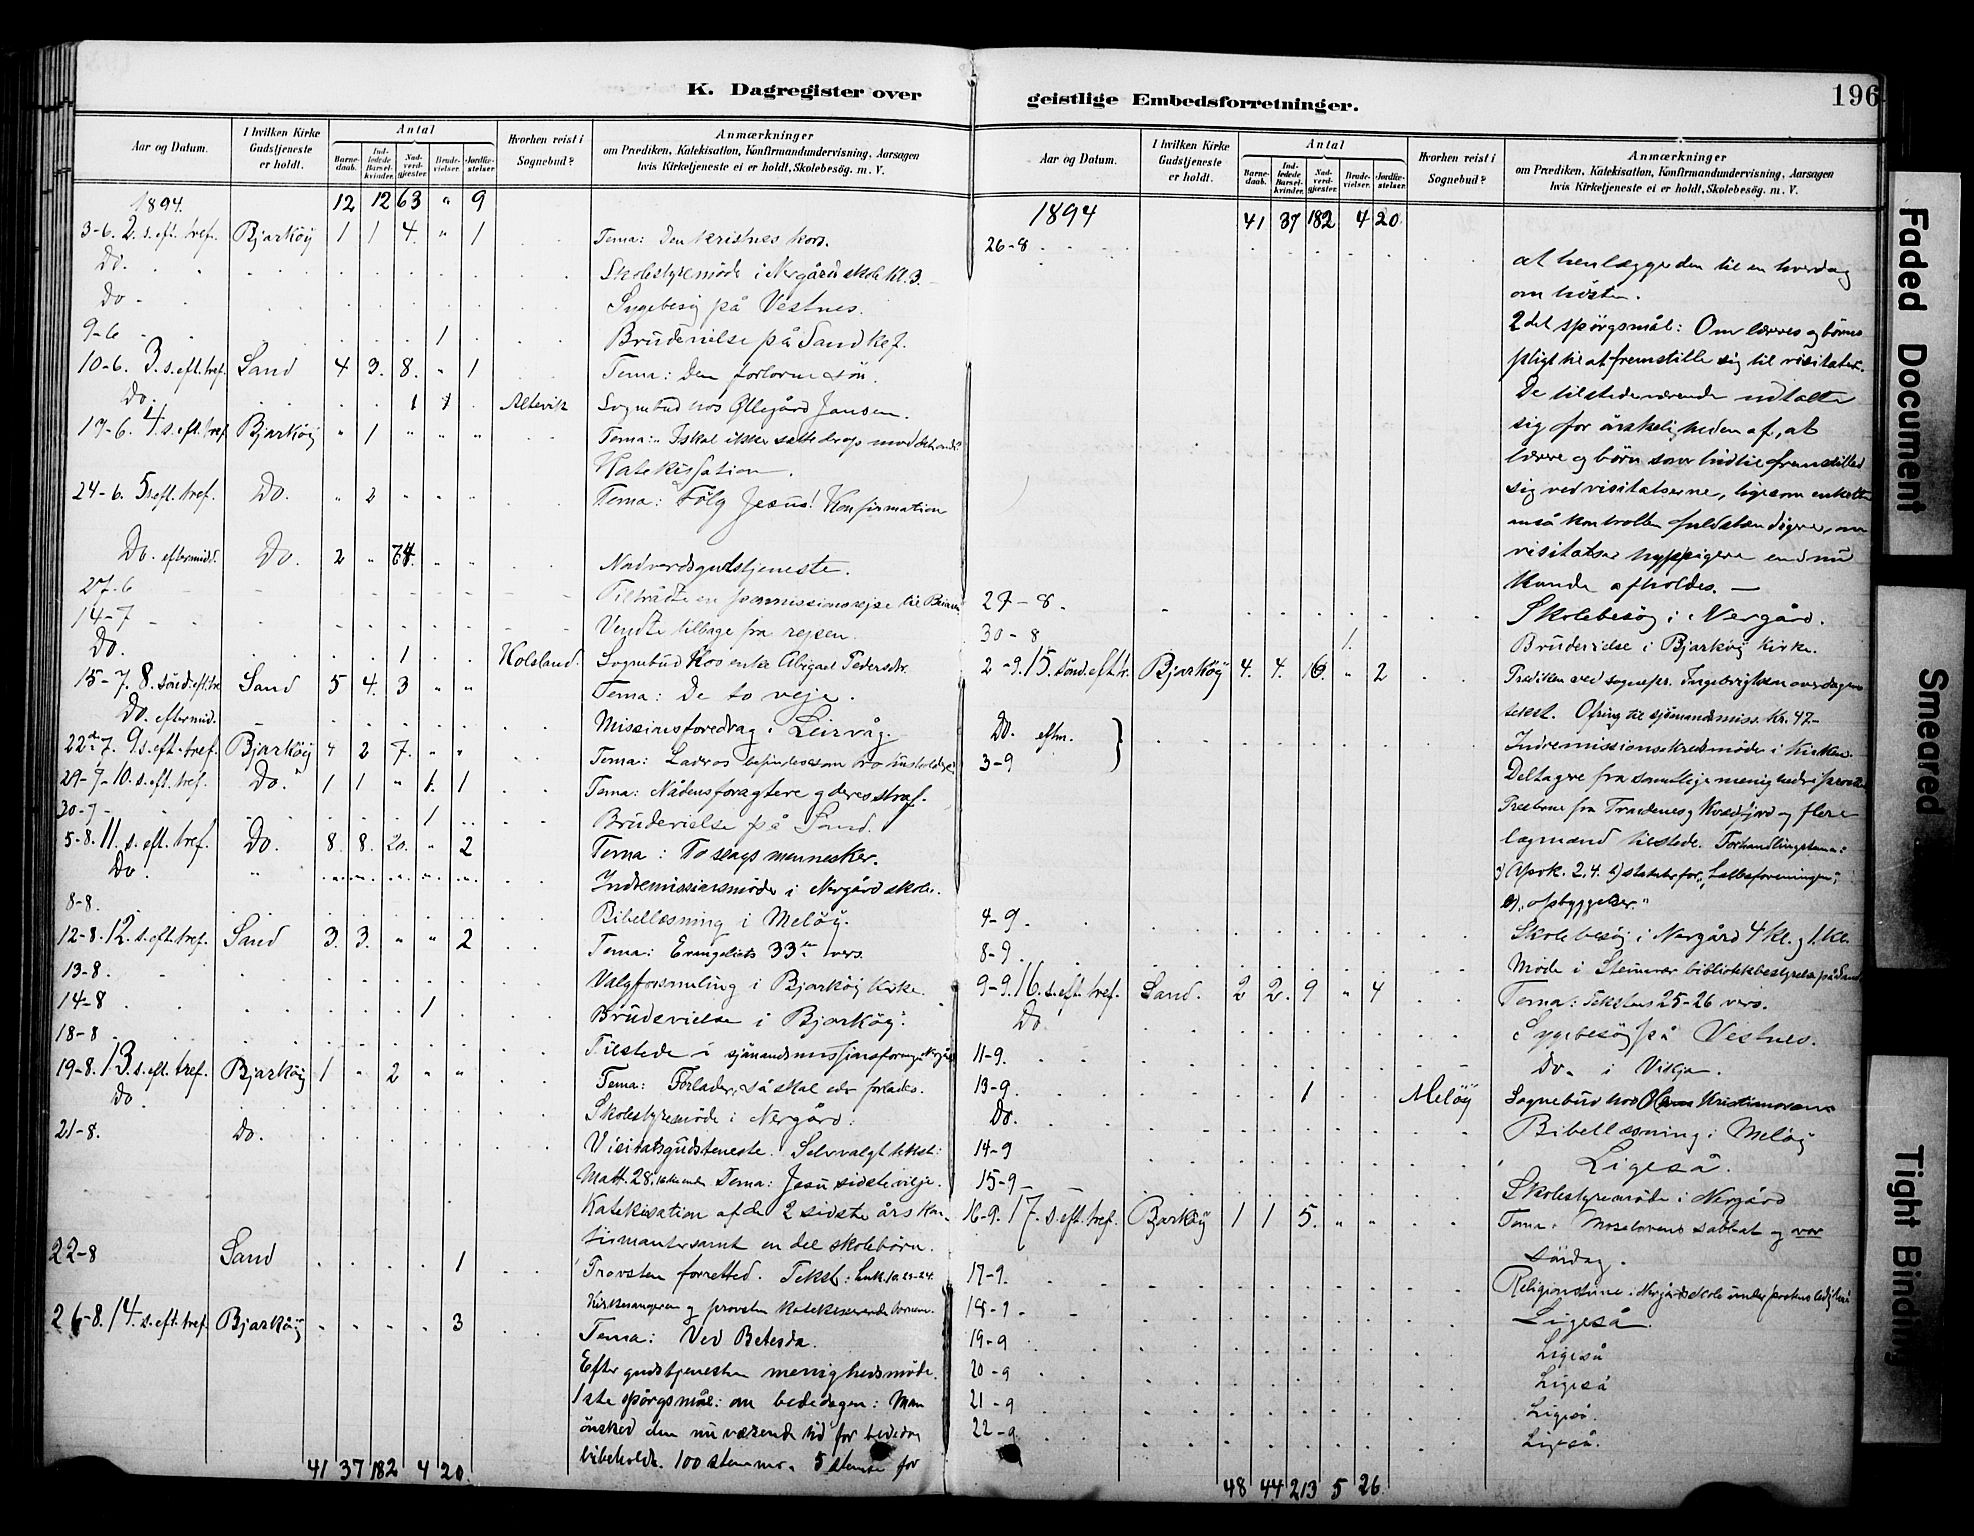 K. Dagregister over
Aar og Datum. I hvilken Kirke Gudstjeneste er holdt. Antal Barnedaab. Indledede Barselkvinder. Nadverdgjester. Brudevielser. Jordfæstelser. Hvorhen reist i Sognebud? Anmærkninger om Prædiken, Katekisation, Konfirmandundervisning, Aarsagen hvis Kirketjeneste ei er holdt, Skolebesög. m. V.
1894. 12 12 63 " 9
3-6. 2. s. eft. tref. Bjarköy 1 1 4. " 1 Tema: Den kristnes kors.
Do. Skolestyremöde i Nergård skole kl. 3.
Do - Sygebesög på Vestnes.
9-6 1 Brudevielse på Sand kef.
10-6. 3. s. eft. tref. Sand 4 3. 8. " 1 Tema: Den forlorne sön.
Do. 1 1 Altevik Sognebud hos Øllegård Jansen.
17-6. 4. s. eft. tref. Bjarköy " 1 " " " Tema: I skal ikke sætte drop mod det onde
Katekisation.
24-6. 5 s. eft. tref. Do. " 2 " " " Tema: Følg Jesus! Konfirmation
Do. eftermidd. Do. 2 " 74. " " Nadverdgudstjeneste.
27-6 Tiltrådte en permissionsrejse til
14-7 Vendte tilbage fra rejsen.
Do. 1 Kolsland. Sognebud hos enke Abigael Pedersdtr.
15-7. 8. sönd. eft. tre Sand 5 4. 3 " " Tema: De to veje.
Do. eftermid. Missionsforedrag i Leirvåg.
22-7. 9 s. eft. tref. Bjarköy 4 2 7. " " Tema: Lad os befindes som tro husholdere
29-7-10. s. eft. tref. Do. 1 1 " 1. 1 Tema: Nådens foragtere og deres straf.
30-7- 1 Brudevielse på Sand.
5-8. 11. s. eft. tref. Do. 8. 8. 20. " 2 Tema: To slags mennesker.
Do. Indremissionsmöde i Nergård skole.
8-8. Bibellæsning i Melöy.
12-8. 12. s. eft. tref. Sand 3. 3. " " 2 Tema: Evangeliets 33te vers.
13-8. Valgforsamling i Bjarköy Kirke.
14-8 1 Brudevielse i Bjarköy.
18-8 Tilstede i sjömandsmissionsforening i Nergård
19-8. 13. s. eft. tref. Bjarköy 1 " 2 " " Tema: Forlader, så skal eder forlades.
Do. Skolestyremöde i Nergård.
21-8. Do. Visitatsgudsteneste. Selvvalgt tekst:
Matt. 28. Tema: Jesu sidste vilje.
Katekisation af de 2 sidste års kon-
firmanter samt en del skolebörn.
22-8 Sand 1 Provsten forretted. Tekst: Luk. 10. 23-24.
Kirkesangeren og provsten katekiserende börnene.
26-8. 14. s. eft. tref. Bjarköy 3 Tema: Ved Betesda.
Efter gudstjenesten menighedsmöde.
1ste spörgsmål: om bededagen: Man
önsked den nuværende tid for bededag
bibeholdt. 100 stemme. 5 stemte for
41 37 182 4 20.
geistlige Embedsforretninger. 196
Aar og Datum. I hvilken Kirke Gudstjeneste er holdt. Antal Barnedaab. Indledede Barselkvinder. Nadverdgjester. Brudevielser. Jordfæstelser. Hvorhen reist i Sognebud? Anmærkninger om Prædiken, Katekisation, Konfirmandundervisning, Aarsagen hvis Kirketjeneste ei er holdt, Skolebesög. m. V.
1894 41 37 182 4 20.
26-8 at henlægge den til en hverdag
om hösten.
2det spörgsmål: Om læreres og börns
pligt til at fremstille sig til visitatser.
De tilstedeværende udtalte
sig for önskeligheden af, at
lærere og börn som hidtil fremstilled
sig ved visitatserne, ligesom enkelte
anså kontrollen fuldstændigere, om
visitatser hyppigere end nu
kunde afholdes. —
27-8. Skolebesög i Nergård.
30-8 1. Brudevielse i Bjarköy Kirke.
2-9. 15. sönd. eft. tr. Bjarköy 4. 4. 16. " 2 Prediken ved sognepr. Ingebrigtsen over dagens
tekst. Ofring til sjömandsmiss. Kr. 47-
Do. eftm. Indremissionskredsmöde i kirken.
3-9 Deltagre fra samtlige menigheder i provstiet
Presterne fra Trondenes og Kvædfjord og flere
lægmænd tilstede. Forhandlingstema:
Apok. 2, 4. statuter for „Sælbeforeningen",
„opbyggelser."
4-9 Skolebesög i Nergård 4 kl. og 1. kl.
8-9. Möde i Steinvær bibliotekbestyrelse på Sand
9-9. 16. s. eft. tref. Sand. 2 2. 9 " 4 Tema: Tekstens 25-26 vers.
Do Sygebesög på Vestnes.
11-9. Do. i Vikja.
13-9. 1 Melöy Sognebud hos Kristianssens
Do. Bibellæsning i Melöy
14-9 Ligeså.
15-9 Skolestyremöde i Nergård
16-9. 17. s. eft. tref. Bjarköy 1 1 5. " " Tema: Moselovens sabbat og vor
söndag.
17-9. Religionstime i Nergårds skole under
18-9 Ligeså.
19-9 Ligeså
20-9 Ligeså
21-9 Ligeså.
22-9 Ligeså.
48 44 213 5 26.
Faded Document
Smeared
Tight Binding